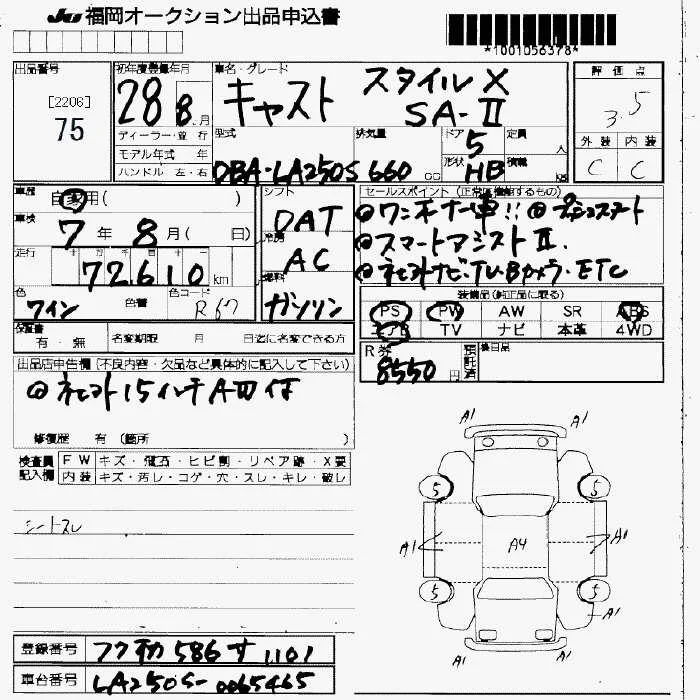 JU 福岡オークション出品申込書
*1001056378*
出品番号
[2206]
75
初年度登録年月
28 8月
ディーラー・並行
モデル年式 年
ハンドル 左・右
車名・グレード
キャスト スタイルX
SA-II
型式
DBA-LA250S
排気量
660 cc
ドア 5
形状 HB
定員 人
積載 kg
評価点
3.5
外装 内装
C C
車歴
自家用( )
車検
7年 8月( 日)
走行
72,610 km
色
ワイン
色替
色コード
R67
シフト
DAT
冷房
AC
燃料
ガソリン
セールスポイント (正常に機能するもの)
◎ワンオーナー車!! ◎プッシュスタート
◎スマートアシストII.
◎ネヒストナビ・TV・Bカメラ・ETC
装備品(純正品に限る)
PS PW AW SR ABS
エアB TV ナビ 本革 4WD
保証書
有・無
名変期限 月 日迄に名変できる方
R券
8550円
預託済
後日品
出品店申告欄 [不良内容・欠品など具体的に記入して下さい]
◎ネヒスト15インチAW付
修復歴 有 (箇所 )
検査員記入欄
FW キズ・飛石・ヒビ割・リペア跡・X要
内装 キズ・汚レ・コゲ・穴・スレ・キレ・破レ
シートスレ
A1 A1
5 5
A1 A4 A1
5 5
A1
A1 A1
登録番号 フク 586 す 1101
車台番号 LA250S-0065465